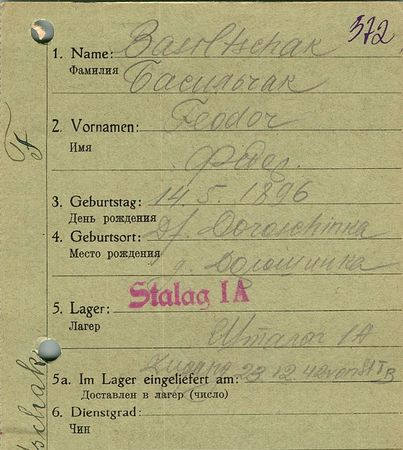 372
1. Name: Basiltschak
Фамилия Басильчак
2. Vornamen: Feodor
Имя
3. Geburtstag: 14. 5. 1896
День рождения
4. Geburtsort: Df. Doroschinka
Место рождения
Stalag IA
5. Lager:
Лагер Шталаг IA
5a. Im Lager eingeliefert am: 23.12.42 von St IB
Доставлен в лагер (число)
6. Dienstgrad:
Чин